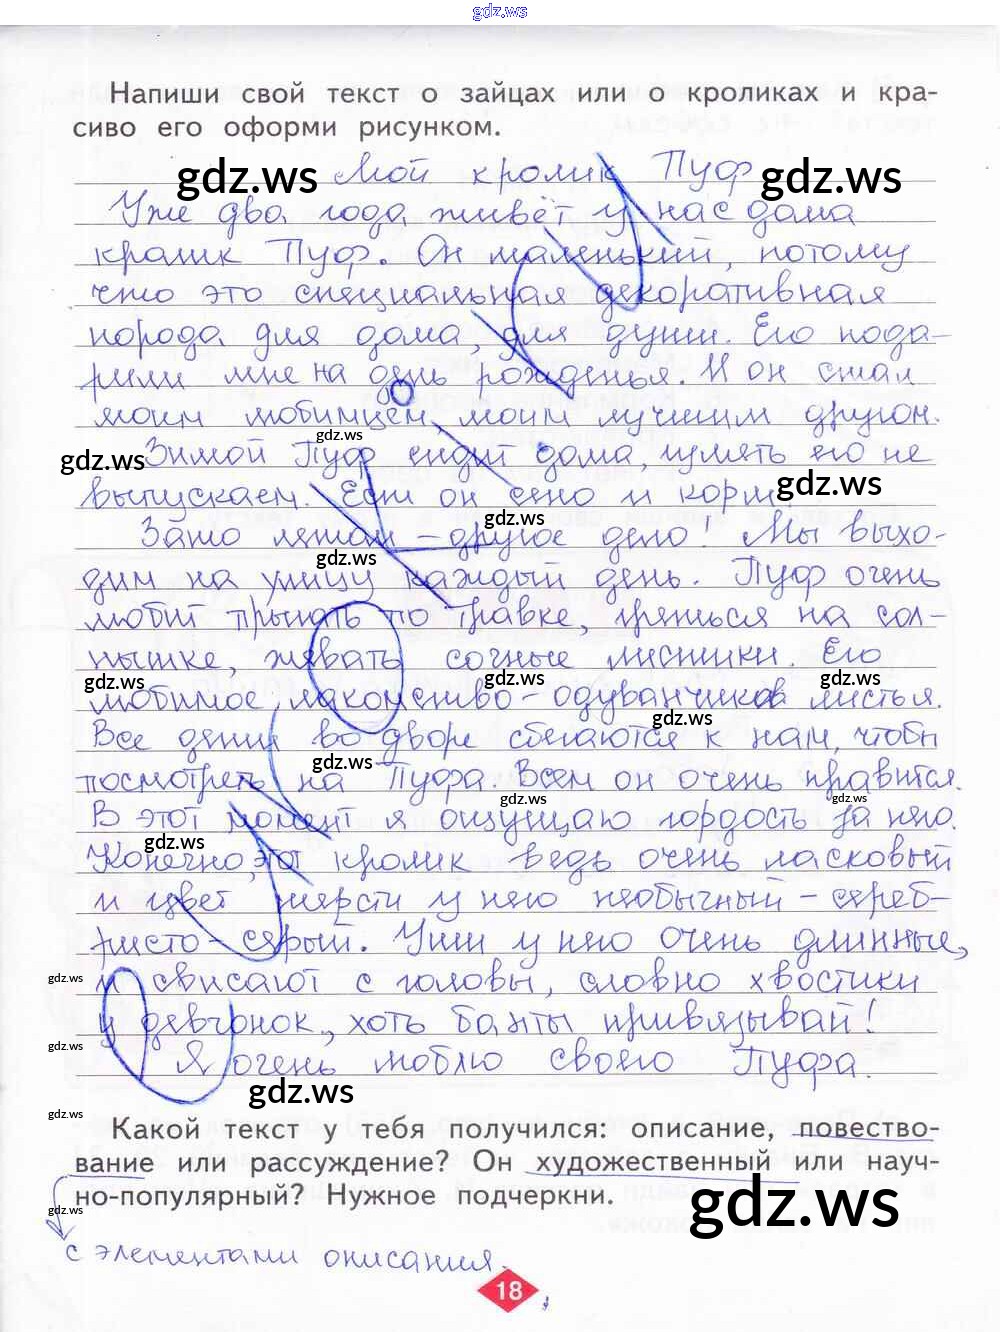 gdz.ws
Напиши свой текст о зайцах или о кроликах и кра-
сиво его оформи рисунком.
gdz.ws Мой кролик Пуф gdz.ws
Уже два года живёт у нас дома
кролик Пуф. Он маленький, потому
что это специальная декоративная
порода для дома, для души. Его пода-
рили мне на день рожденья. И он стал
моим любимцем, моим лучшим другом.
gdz.ws
Зимой Пуф сидит дома, гулять его не
gdz.ws
выпускаем. Ест он сено и корм
gdz.ws
gdz.ws
Зато летом – другое дело! Мы выхо-
gdz.ws
дим на улицу каждый день. Пуф очень
любит прыгать по травке, греться на сол-
нышке, жевать сочные листики. Его
gdz.ws gdz.ws gdz.ws
любимое лакомство – одуванчиков листья.
gdz.ws
Все дети во дворе сбегаются к нам, чтобы
gdz.ws
посмотреть на Пуфа. Всем он очень нравится.
gdz.ws gdz.ws
В этот момент я ощущаю гордость за него.
gdz.ws
Конечно, этот кролик ведь очень ласковый
и цвет шерсти у него необычный – сереб-
ристо-серый. Уши у него очень длинные,
gdz.ws
и свисают с головы, словно хвостики
у девчонок, хоть банты привязывай!
gdz.ws
Я очень люблю своего Пуфа.
gdz.ws
gdz.ws
Какой текст у тебя получился: описание, повество-
вание или рассуждение? Он художественный или науч-
но-популярный? Нужное подчеркни.
gdz.ws
gdz.ws
с элементами описания.
18